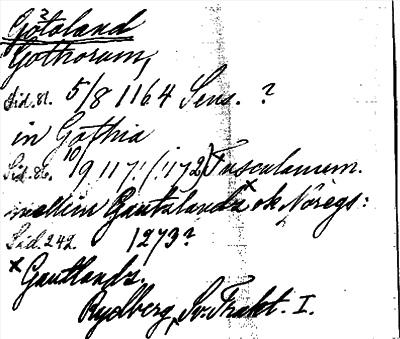 Götaland
Gothorum,
Sid. 81. 5/8 1164 Sens. ?
in Gothia
Sid. 86. 10/9 117! (:1172) Tusculanum.
mellim Gautalandzx ok Noregs:
Sid. 242. 1273?
x Gautlandz.
Rydberg, Sv. Trakt. I.